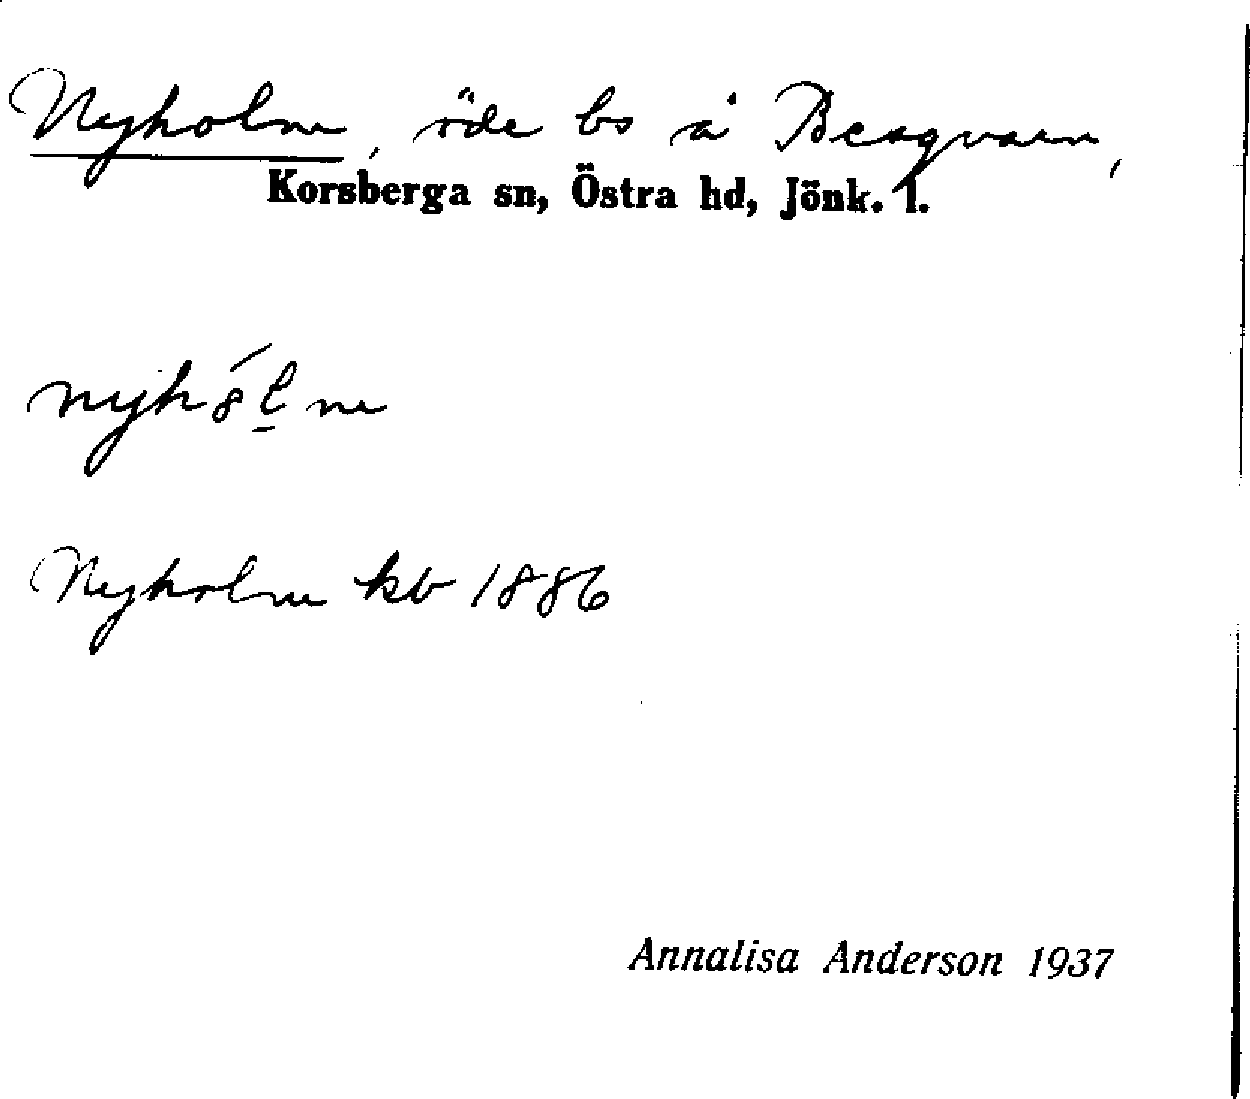 Nyholm, öde bs å Bergvarn,
Korsberga sn, Östra hd, Jönk. l.
Nyholm kb 1886
Annalisa Anderson 1937